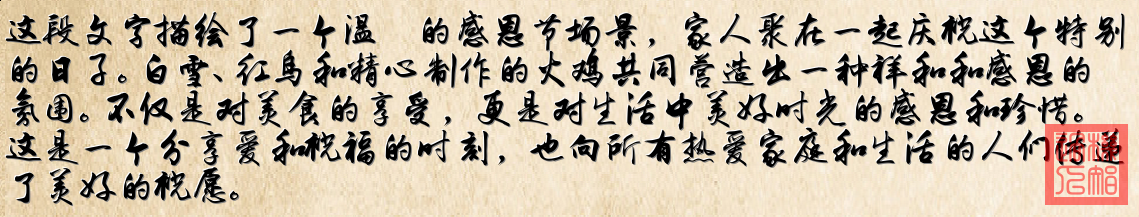 这段文字描绘了一个温 的感恩节场景，家人聚在一起庆祝这个特别
的日子。白雪、红鸟和精心制作的火鸡共同营造出一种祥和和感恩的
氛围。不仅是对美食的享受，更是对生活中美好时光的感恩和珍惜。
这是一个分享爱和祝福的时刻，也向所有热爱家庭和生活的人们传递
了美好的祝愿。